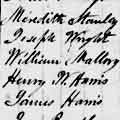 Meredith Stanley
Joseph Wright
William Mallory
Henry N. Harris
James Harris